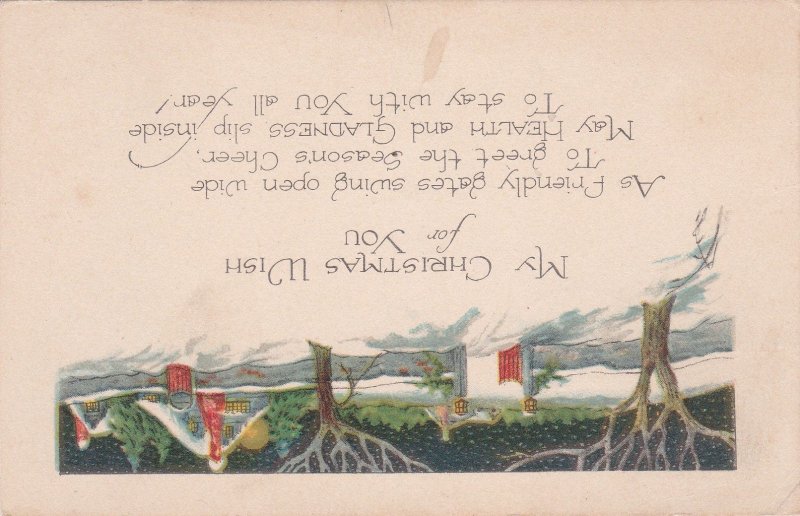 My Christmas Wish
for You
As Friendly gates swing open wide
To greet the Season's Cheer,
May Health and Gladness slip inside
To stay with You all year!